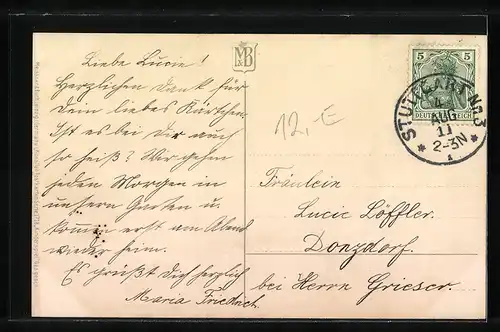 Liebe Lucie!
Herzlichen Dank für
dein liebes Kärtchen.
Ist es bei Dir auch
so heiß? Wir gehen
jeden Morgen in
unsern Garten u.
kommen erst am Abend
wieder heim.
Es grüßt Dich herzlich
Maria Friedrich
M&B
12,-€
5 5
DEUTSCHES REICH
STUTTGART No. 3
4
AUG
11
* 2-3N *
Fräulein
Lucie Löffler.
Donzdorf.
bei Herrn Grieser.